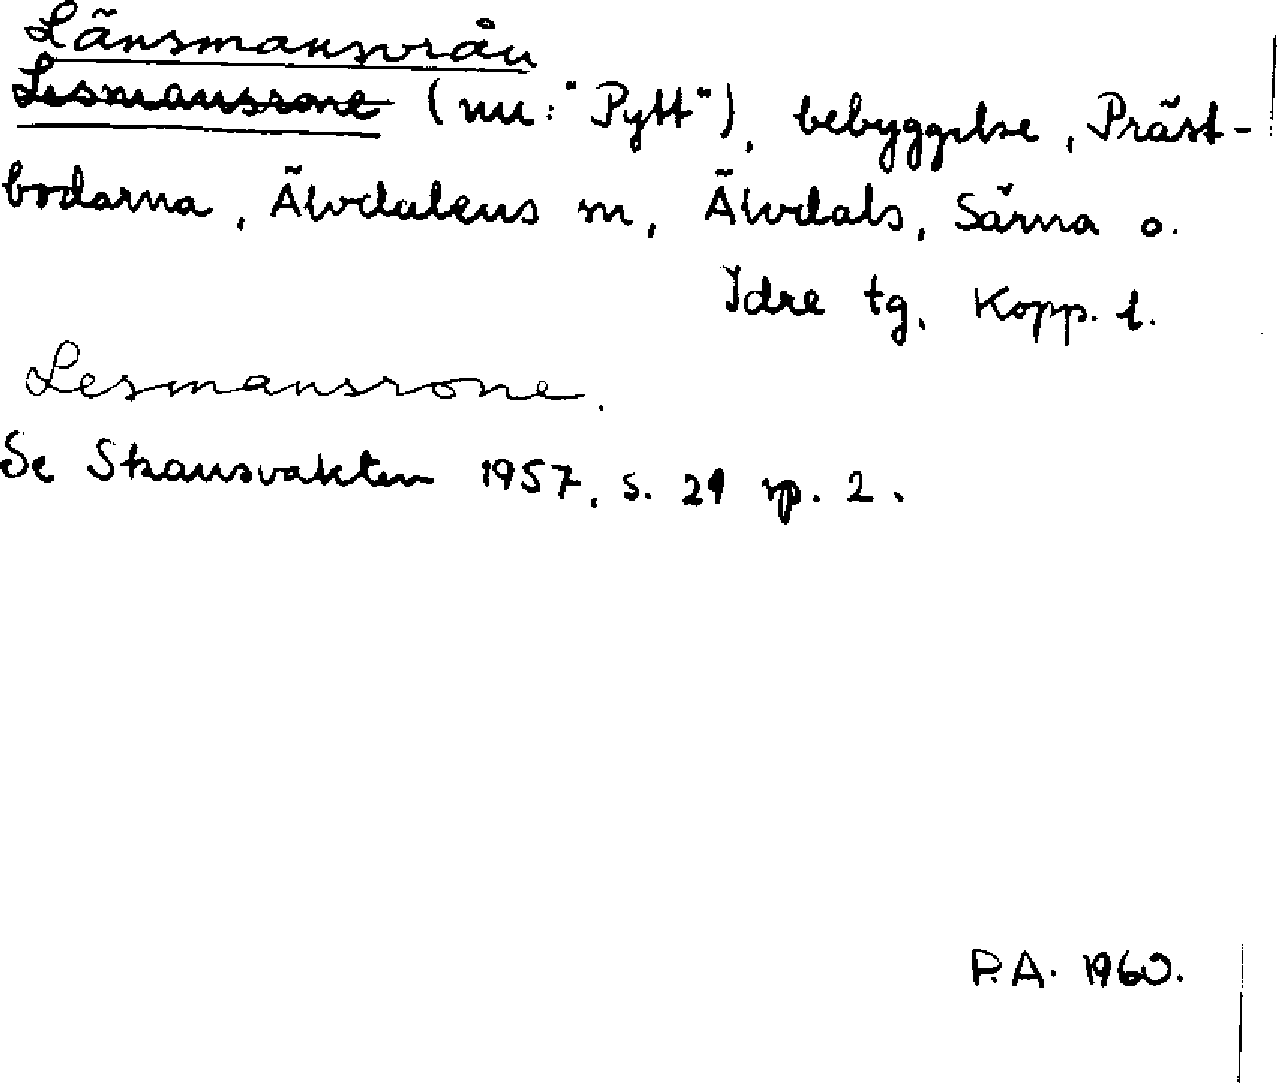 Länsmansvrån
Lesmansrone (nu: "Pytt"), bebyggelse, Präst-
bodarna, Älvdalens sn, Älvdals, Särna o.
Idre tg, Kopp. l.
Lesmansrone.
Se Skansvakten 1957, s. 29 sp. 2.
P.A. 1960.